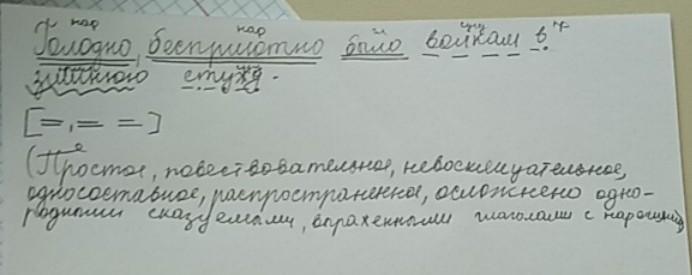 нар нар гл сущ п
Голодно, бесприютно было волкам в
зимнюю стужу.
[=,= =]
(Простое, повествовательное, невосклицательное,
односоставное, распространенное, осложнено одно-
родными сказуемыми, выраженными глаголами с наречиями)